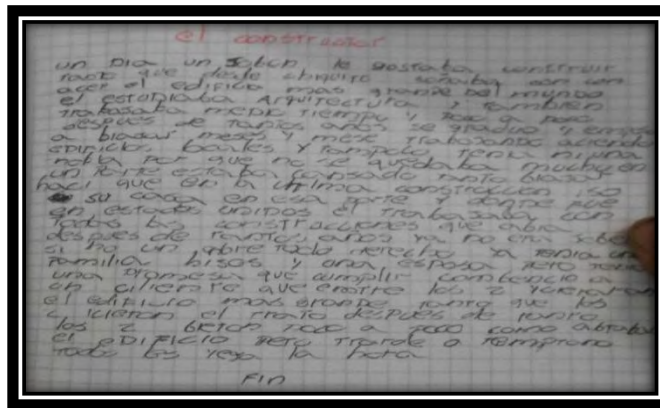 el constructor
un Dia un Joben le gostaba construir
tanto que desde chiquito soñaba con
acer el edificio mas grande del mundo
el estudiaba Arquitectura y tambien
trabajaba medio tiempo y poco a poco
despues de tantos años se graduo y empeso
a biajar meses y mese trabajando aciendo
edificios, locales y tampoco tenia ni una
nobia por que no se quedaba mucho en
un parte estaba cansado tanto biajar
haci que en la ultima construccion iso
su casa en esa parte y donde fue
en estados unidos el trabajaba con
todas las construcciones que abia
despues de tanto años ya no era joben
si no un hombre ya tenia un
familia hijos y una esposa pero tenia
una promesa que cumplir
un cliente que entre los 2
el edificio mas grande tanto que los
2 icieron el trato despues de tanto
los 2 poco a poco como
el edificio pero trarde o temprano
todos les la hora
Fin